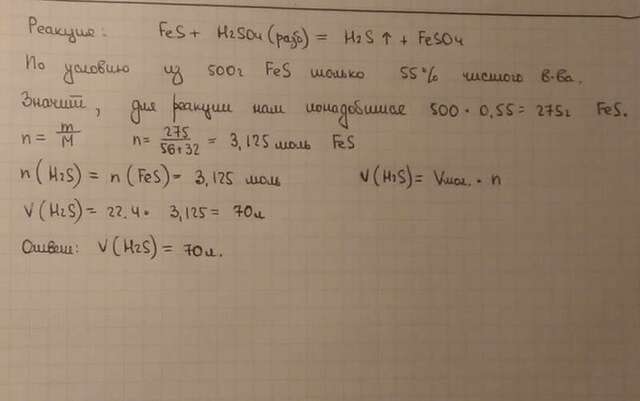 Реакция: FeS + H2SO4 (разб) = H2S ↑ + FeSO4
По условию из 500г FeS только 55% чистого в-ва.
Значит, для реакции нам понадобится 500 · 0,55 = 275г FeS.
n = m/M n = 275/56+32 = 3,125 моль FeS
n(H2S) = n(FeS) = 3,125 моль V(H2S) = Vмол. · n
V(H2S) = 22.4 · 3,125 = 70л
Ответ: V(H2S) = 70л.